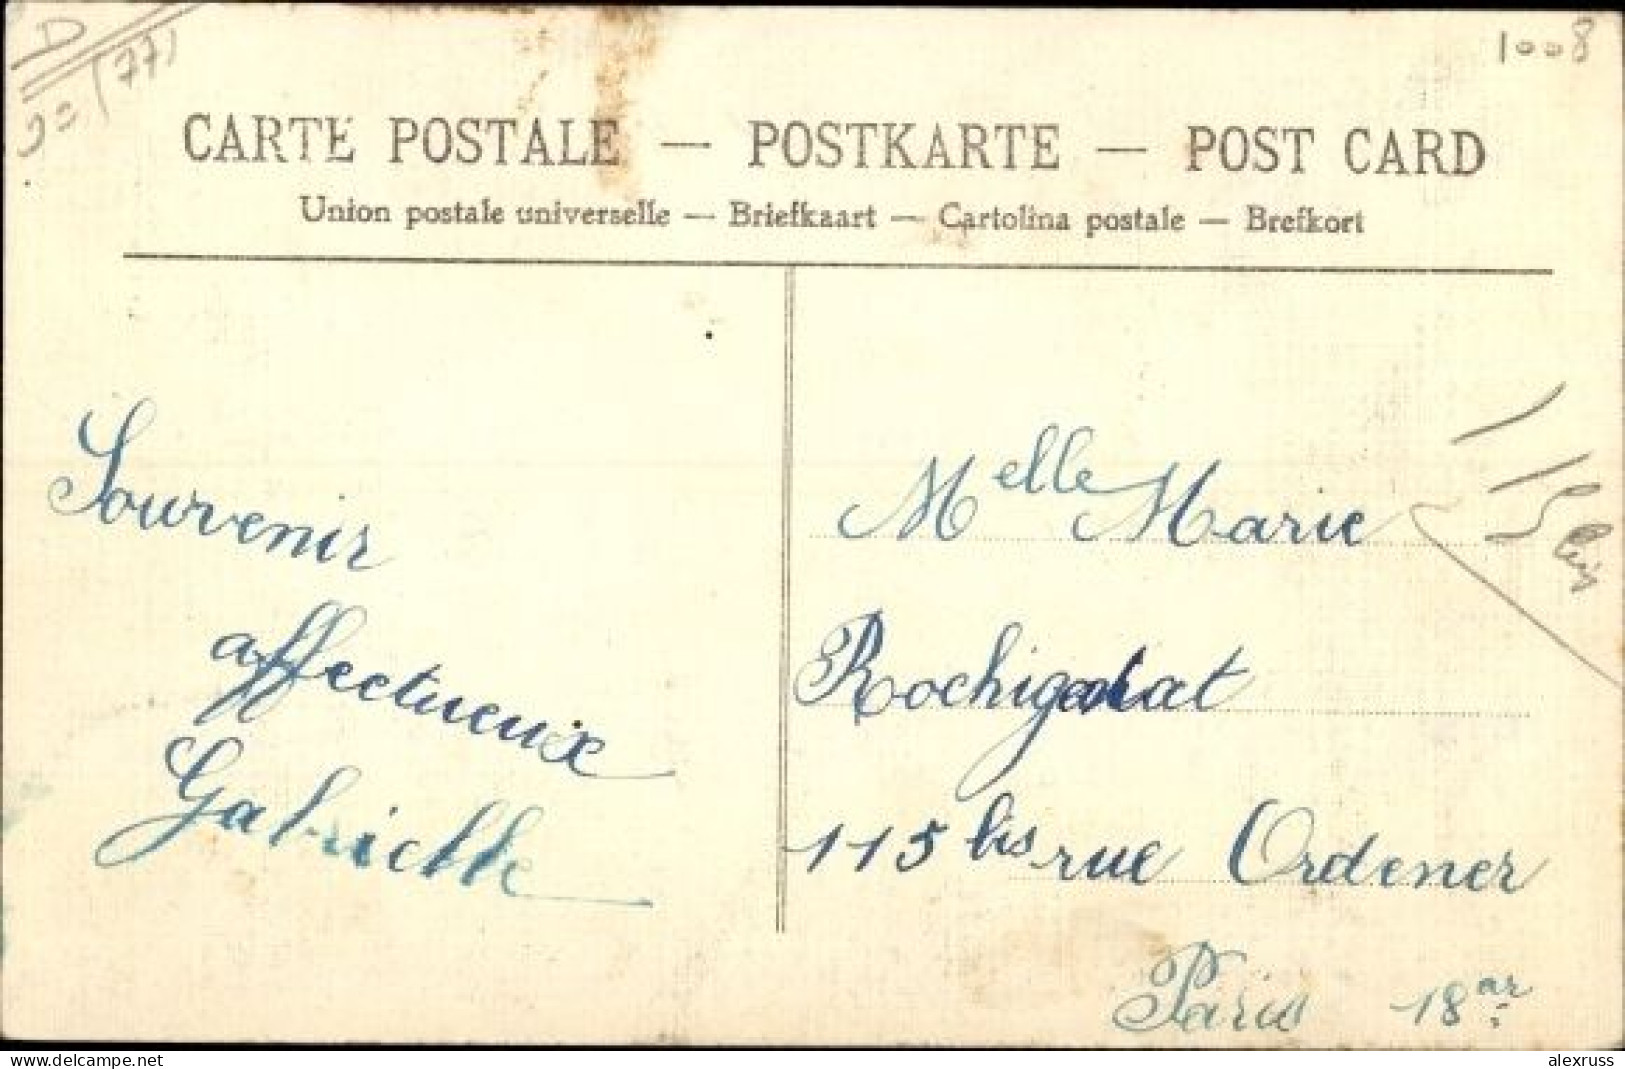 D
(77)
1008
CARTE POSTALE — POSTKARTE — POST CARD
Union postale universelle — Briefkaart — Cartolina postale — Brefkort
Souvenir
affectueux
Gabrielle
Melle Marie
115 bis rue Ordener
Paris 18 ar
www.delcampe.net
alexruss